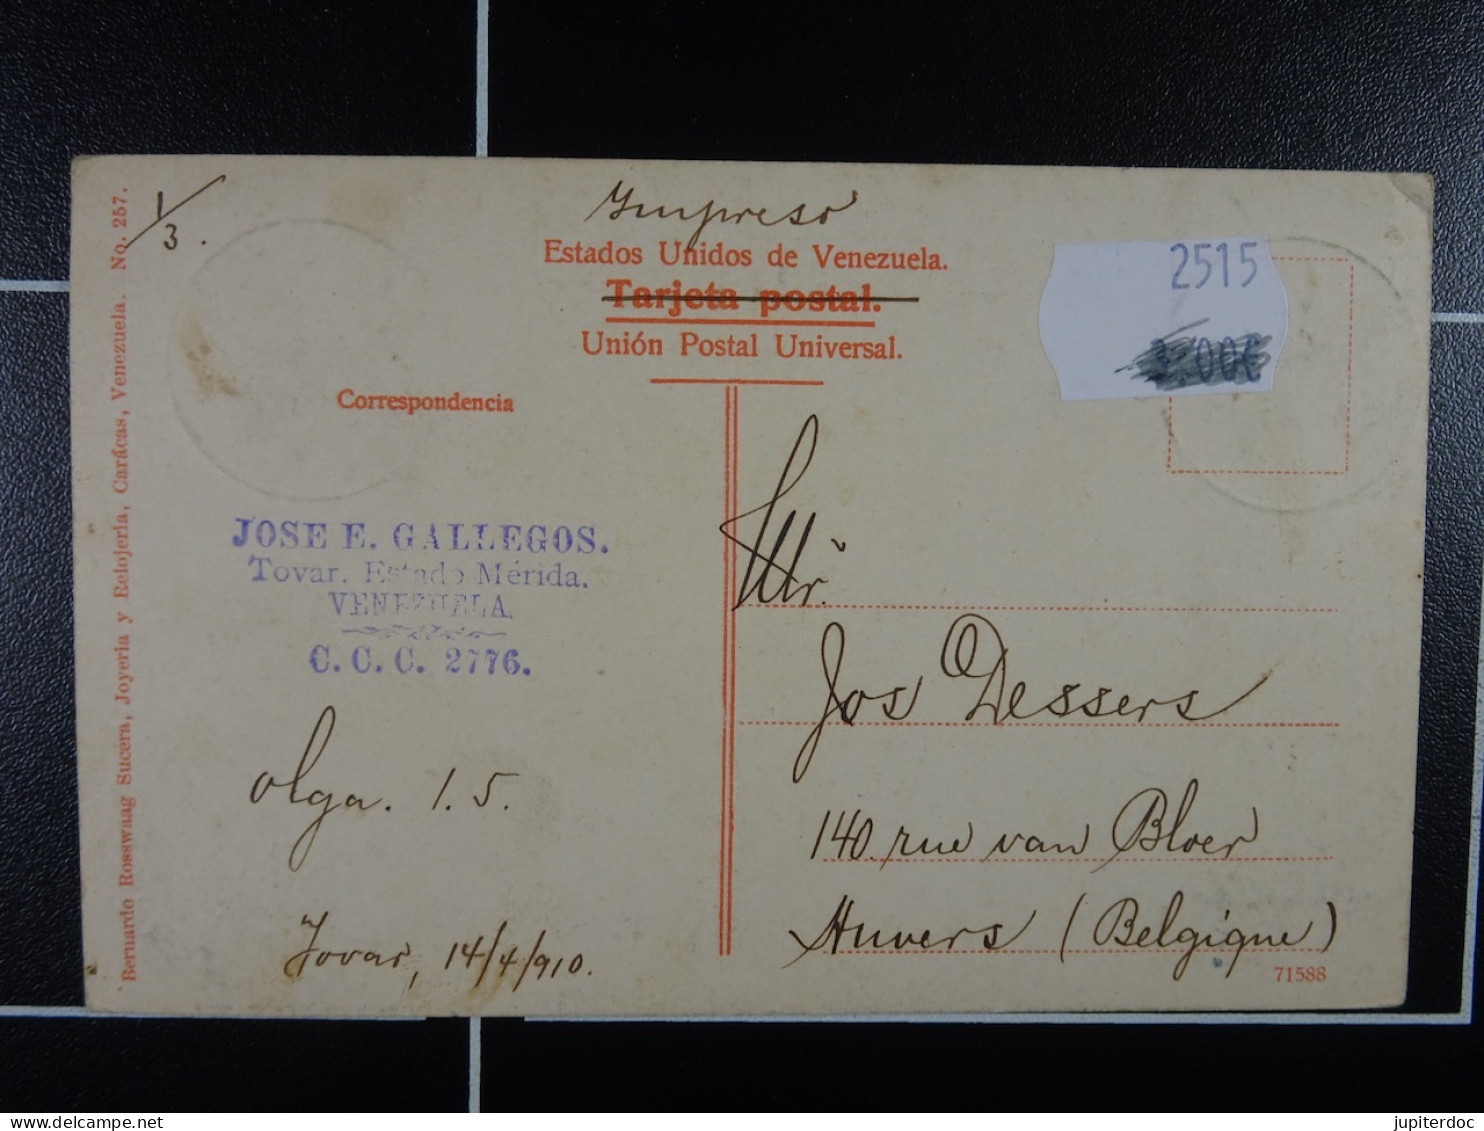 1/3.
Impreso
Estados Unidos de Venezuela.
Tarjeta postal.
Unión Postal Universal.
Correspondencia
2515
Bernardo Rosswaag Sucera, Joyeria y Relojeria, Carácas, Venezuela. No. 257.
JOSE E. GALLEGOS.
Tovar. Estado Mérida.
VENEZUELA.
C. C. C. 2776.
Olga. 1. 5.
Tovar, 14/4/910.
Mr.
Jos Dessers
140 rue van Bloer
Anvers (Belgique)
71588
jupiterdoc
delcampe.net